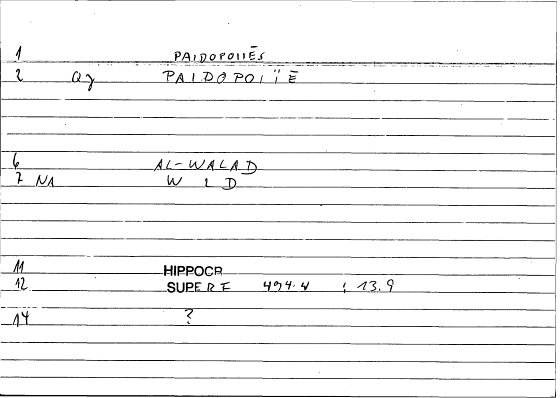 1 PAIDOPOIIĒS
2 Qy PAIDOPOIÏĒ
6 AL-WALAD
7 NA W L D
11 HIPPOCR
12 SUPERF 494.4 : 13.9
14 ?